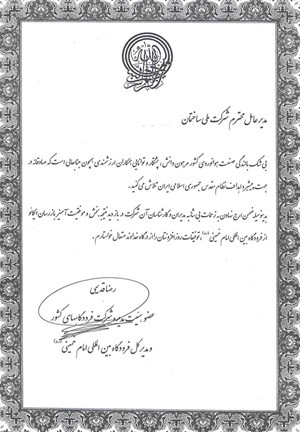 مدیر عامل محترم شرکت ملی ساختمان
بی شک بالندگی صنعت هوانوردی کشور مرهون دانش، پشتکار و توانایی همکاران ارزشمندی همچون جنابعالی است که صادقانه در
جهت پیشبرد اهداف نظام مقدس جمهوری اسلامی ایران تلاش می کنید.
بدینوسیله ضمن ارج نهادن به زحمات بی شائبه مدیران و کارشناسان آن شرکت در بازدید نتیجه بخش و موفقیت آمیز بازرسان ایکائو
از فرودگاه بین المللی امام خمینی (ره)، توفیقات روزافزونتان را از درگاه خداوند متعال خواستارم.
رضا قدیمی
عضو هیئت مدیره شرکت فرودگاههای کشور
و مدیر کل فرودگاه بین المللی امام خمینی (ره)